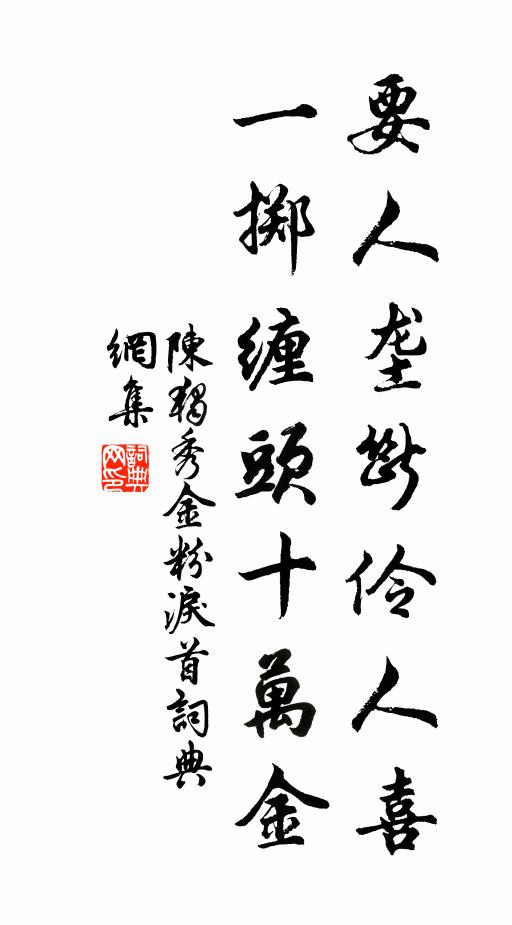 要人垄斷伶人喜
一掷纏頭十萬金
陳獨秀金粉淚首詞典
網集
詞典
网印